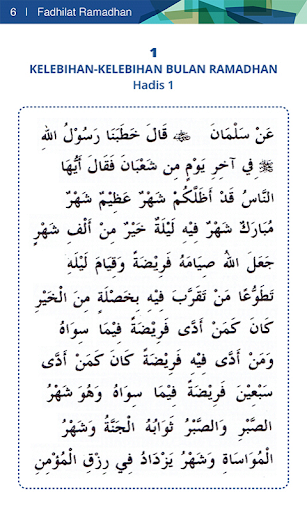 6 | Fadhilat Ramadhan
1
KELEBIHAN-KELEBIHAN BULAN RAMADHAN
Hadis 1
عَنْ سَلْمَانَ ﷺ قَالَ خَطَبَنَا رَسُوْلُ اللهِ
ﷺ فِي آخِرِ يَوْمٍ مِن شَعْبَانَ فَقَالَ أَيُّهَا
النَّاسُ قَدْ أَظَلَّكُمْ شَهْرٌ عَظِيْمٌ شَهْرٌ
مُبَارَكٌ شَهْرٌ فِيْهِ لَيْلَةٌ خَيْرٌ مِنْ أَلْفِ شَهْرٍ
جَعَلَ اللهُ صِيَامَهُ فَرِيْضَةً وَقِيَامَ لَيْلَهِ
تَطَوُّعًا مَنْ تَقَرَّبَ فِيْهِ بِخَصْلَةٍ مِنَ الْخَيْرِ
كَانَ كَمَنْ أَدَّى فَرِيْضَةً فِيْمَا سِوَاهُ
وَمَنْ أَدَّى فِيْهِ فَرِيْضَةً كَانَ كَمَنْ أَدَّى
سَبْعِيْنَ فَرِيْضَةً فِيْمَا سِوَاهُ وَهُوَ شَهْرُ
الصَّبْرِ وَالصَّبْرُ ثَوَابُهُ الْجَنَّةُ وَشَهْرُ
الْمُوَاسَاةِ وَشَهْرٌ يَزْدَادُ فِي رِزْقِ الْمُؤْمِنِ